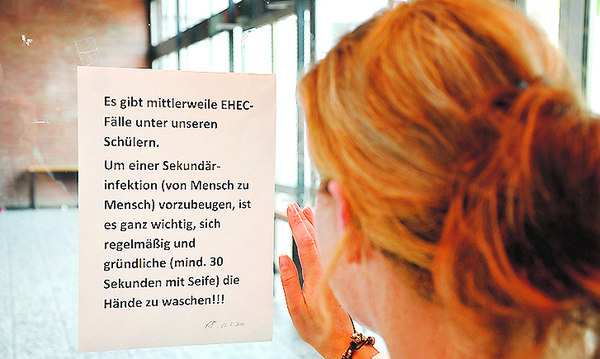 Es gibt mittlerweile EHEC-
Fälle unter unseren
Schülern.
Um einer Sekundär-
infektion (von Mensch zu
Mensch) vorzubeugen, ist
es ganz wichtig, sich
regelmäßig und
gründliche (mind. 30
Sekunden mit Seife) die
Hände zu waschen!!!